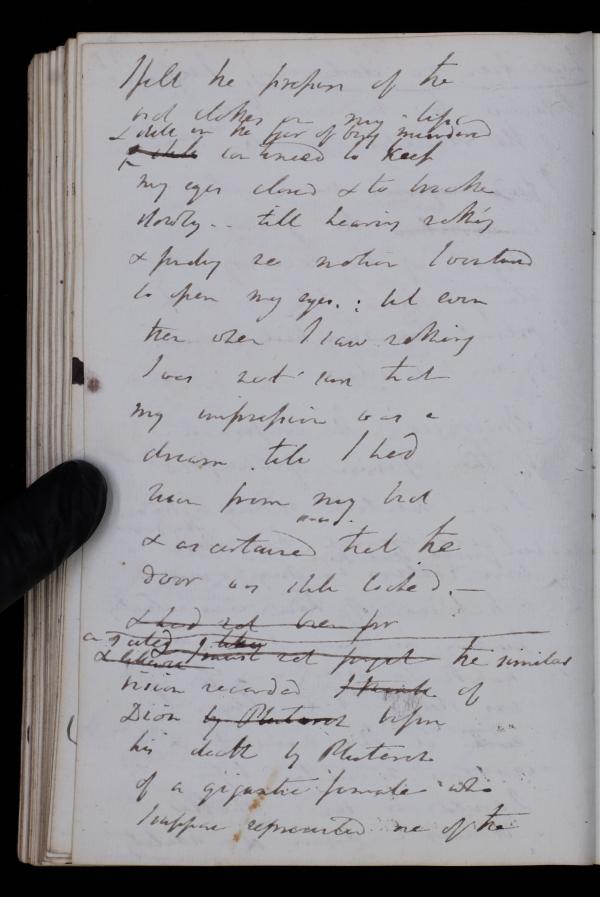 I felt the pressure of the
bed clothes on my lips
& still in the fear of being murdered
& still continued to keep
my eyes closed & to breathe
slowly .. till hearing nothing
& finding no motion I ventured
to open my eyes. : but even
then when I saw nothing
I was not sure that
my impression was a
dream till I had
risen from my bed
& ascertained that the
door was still locked. —
& had not been for
a
I must not forget the similar
vision recorded I think of
Dion by Plutarch before
his death by Plutarch
of a gigantic female who
I suppose represented one of the